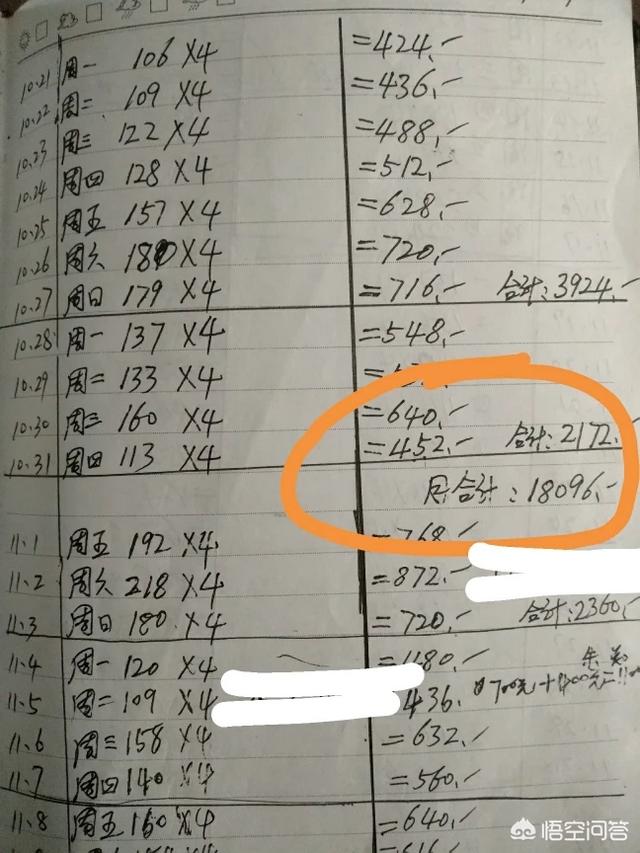 10.21 周一 106 X4 =424.-
10.22 周二 109 X4 =436.-
10.23 周三 122 X4 =488.-
10.24 周四 128 X4 =512.-
10.25 周五 157 X4 =628.-
10.26 周六 180 X4 =720.-
10.27 周日 179 X4 =716.- 合计:3924.-
10.28 周一 137 X4 =548.-
10.29 周二 133 X4
10.30 周三 160 X4 =640.-
10.31 周四 113 X4 =452.- 合计:2172.-
合计:18096.-
11.1 周五 192 X4 =768.-
11.2 周六 218 X4 =872.-
11.3 周日 180 X4 =720.- 合计:2360.-
11.4 周一 120 X4 =1180.-
11.5 周二 109 X4 436.
11.6 周三 158 X4 =632.-
11.7 周四 140 X4 =560.-
11.8 周五 160 X4 =640.-
悟空问答